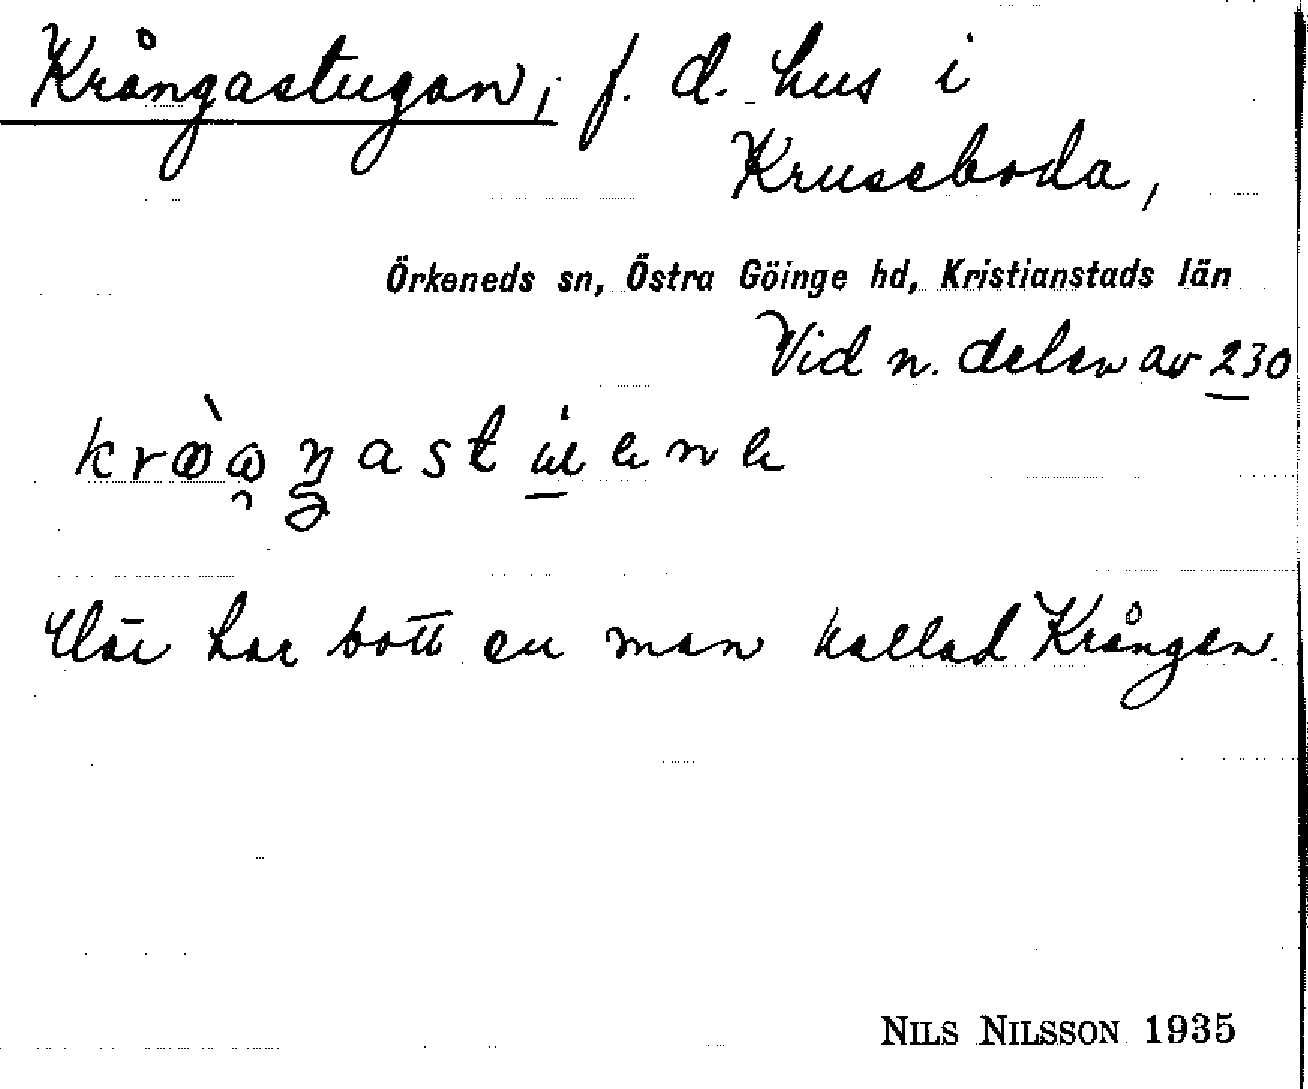 Krångastugan, f. d. hus i
Kruseboda,
Örkeneds sn, Östra Göinge hd, Kristianstads län
Vid n. delen av 230
Där har bott en man kallad Krången.
NILS NILSSON 1935